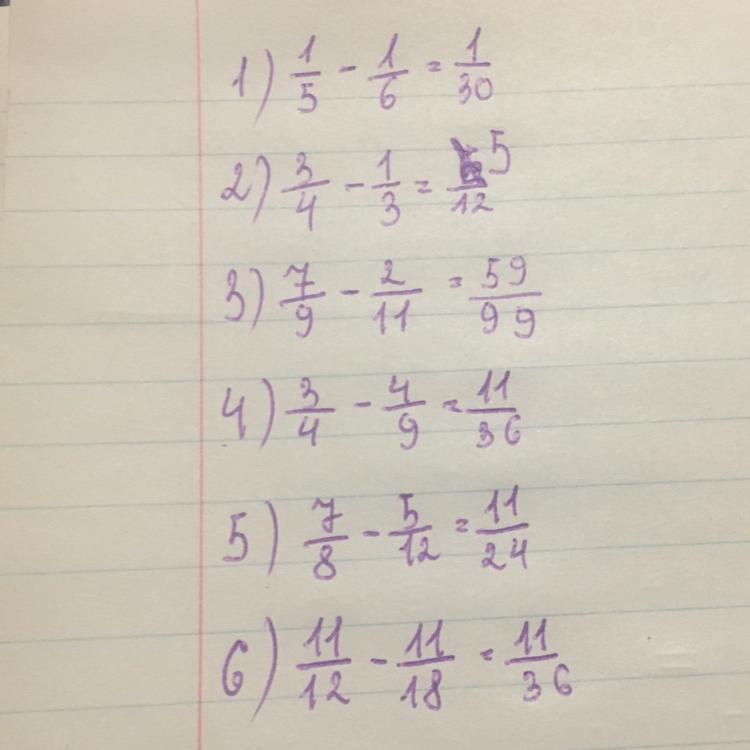 1) 1/5 - 1/6 = 1/30
2) 3/4 - 1/3 = 5/12
3) 7/9 - 2/11 = 59/99
4) 3/4 - 4/9 = 11/36
5) 7/8 - 5/12 = 11/24
6) 11/12 - 11/18 = 11/36